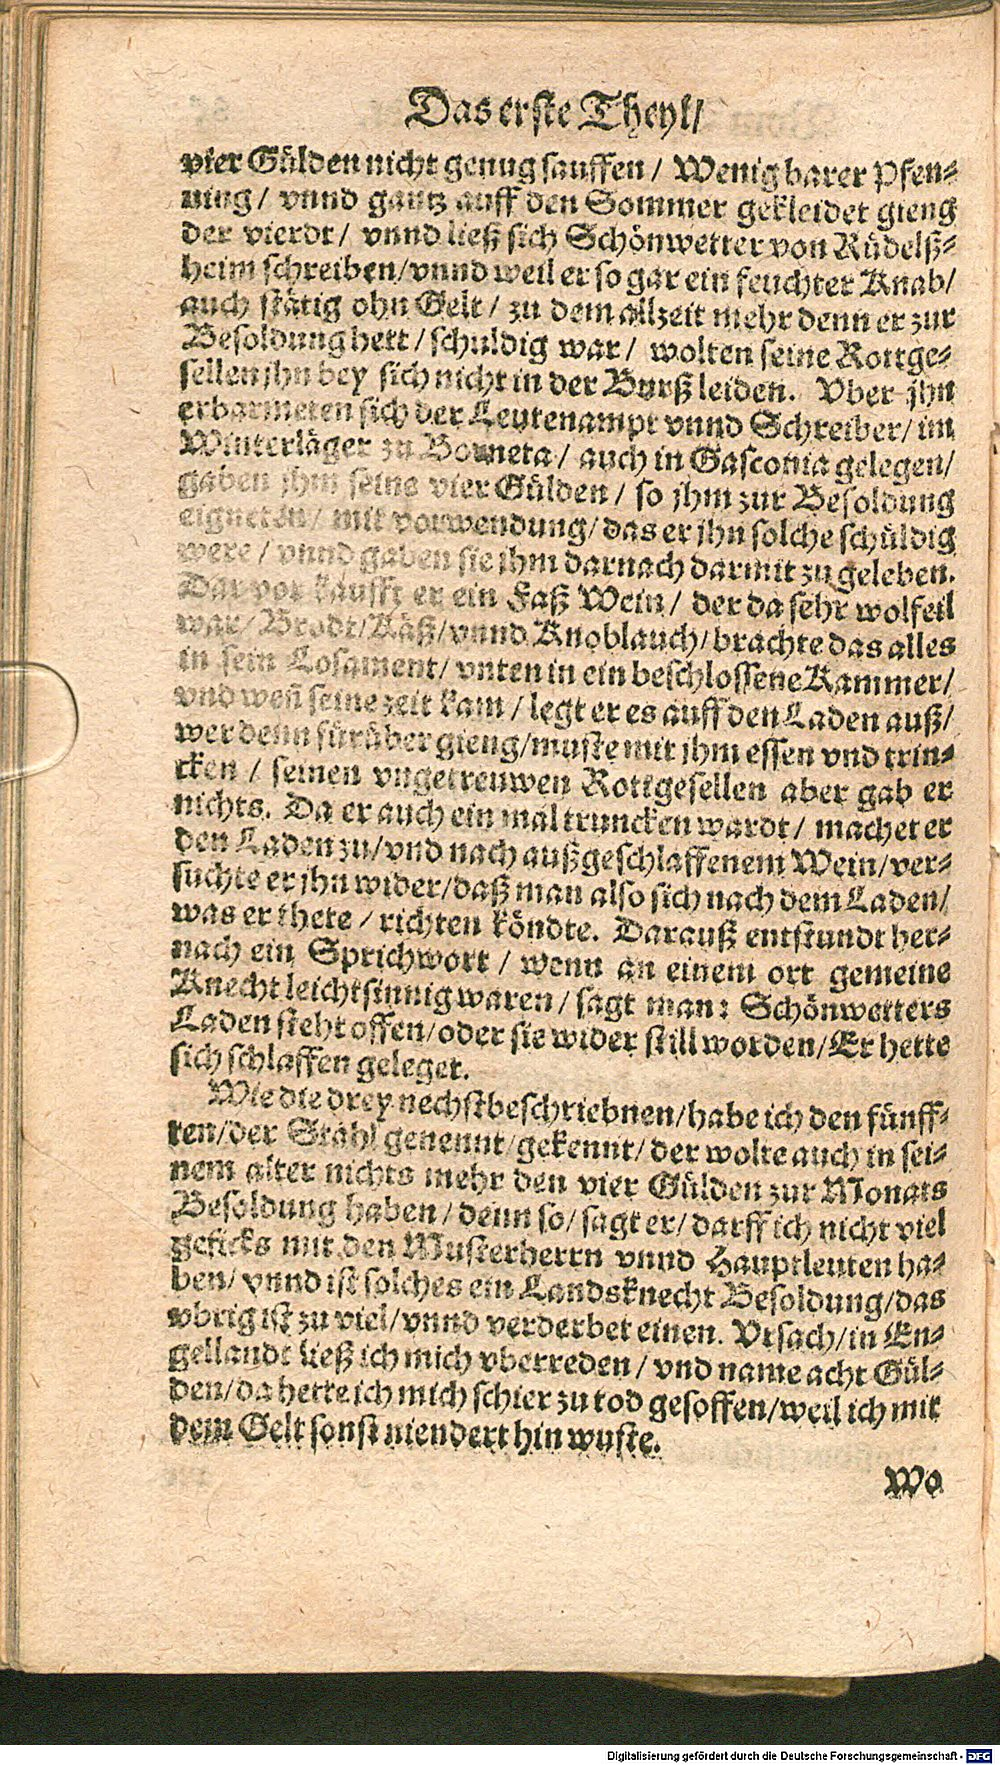 Das erste Theyl/
vier Gülden nicht genug sauffen / Wenig barer Pfen-
ning / vnnd gantz auff den Sommer gekleidet gieng
der vierdt / vnnd ließ sich Schönwetter von Rüdelß-
heim schreiben/vnnd weil er so gar ein feuchter Knab/
auch stätig ohn Gelt / zu dem allzeit mehr denn er zur
Besoldung hett / schuldig war / wolten seine Rottge-
sellen jhn bey sich nicht in der Burß leiden. Vber jhn
erbarmeten sich der Leutenampt vnnd Schreiber/ im
Winterläger zu Bowneta / auch in Gasconia gelegen/
gaben jhm seine vier Gülden / so jhm zur Besoldung
eigneten/ mit vorwendung/ das er jhn solche schüldig
were / vnnd gaben sie jhm darnach darmit zu geleben.
Dar vor käufft er ein Faß Wein / der da sehr wolfeil
war/ Brodt/Käß/vnnd Knoblauch/ brachte das alles
in sein Losament/ vnten in ein beschlossene Kammer/
vnd weñ seine zeit kam / legt er es auff den Laden auß/
wer denn fürüber gieng/muste mit jhm essen vnd trin-
cken / seinen vngetreuwen Rottgesellen aber gab er
nichts. Da er auch ein mal truncken wardt / machet er
den Laden zu/vnd nach außgeschlaffenem Wein/ver-
suchte er jhn wider/daß man also sich nach dem Laden/
was er thete / richten köndte. Darauß entstundt her-
nach ein Sprichwort / wenn an einem ort gemeine
Knecht leichtsinnig waren / sagt man: Schönwetters
Laden steht offen/oder sie wider still worden/Er hette
sich schlaffen geleget.
Wie die drey nechstbeschriebnen/habe ich den fünff-
ten/der Stahl genennt/gekennt/ der wolte auch in sei-
nem alter nichts mehr den vier Gülden zur Monats
Besoldung haben / denn so/ sagt er/ darff ich nicht viel
geficks mit den Musterherrn vnnd Hauptleuten ha-
ben/ vnnd ist solches ein Landsknecht Besoldung/das
vbrig ist zu viel/vnnd verderbet einen. Vrsach/in En-
gellandt ließ ich mich vberreden / vnd name acht Gül-
den/da hette ich mich schier zu tod gesoffen/weil ich mit
dem Gelt sonst niendert hin wuste.
Wo
Digitalisierung gefördert durch die Deutsche Forschungsgemeinschaft - DFG